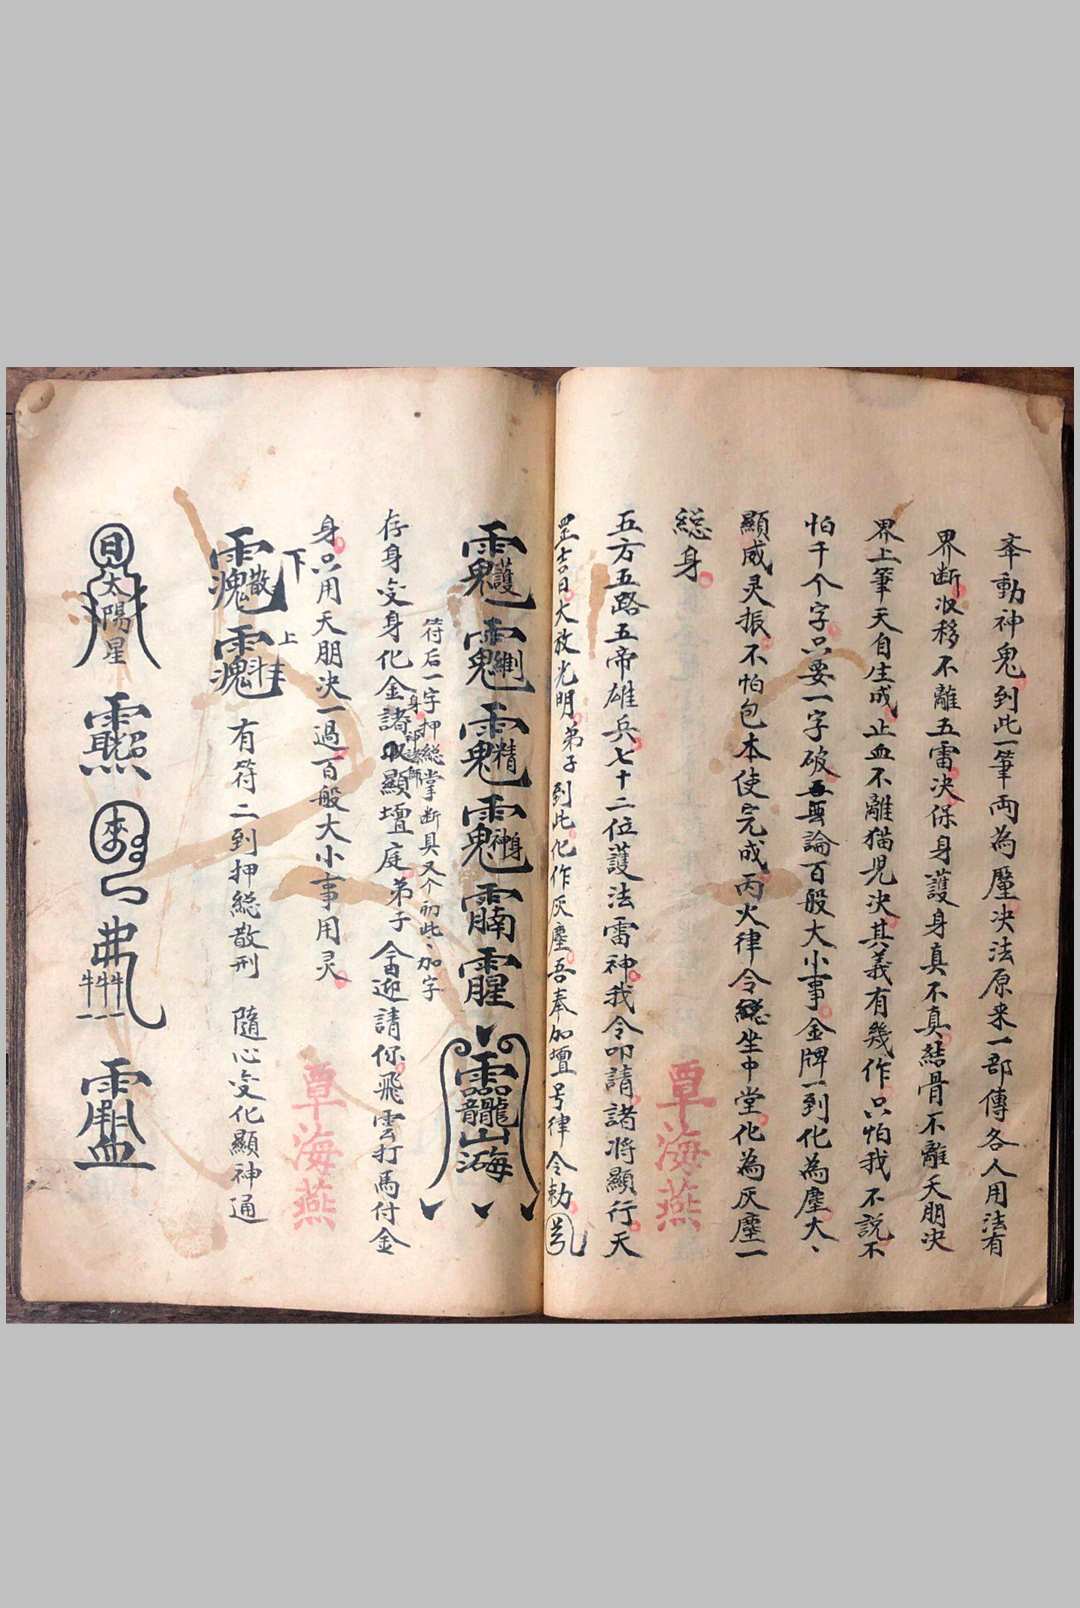 奉動神鬼到此一筆两為壓决法原来一部傳各人用法有
界断汝移不離五雷决保身護身真不真結骨不離天朋决
界上筆天自生成止血不離猫児决其義有幾作只怕我不説不
怕千个字只要一字破無論百般大小事金牌一到化為塵大、
顯威灵振不怕包本使完成丙火律令總坐中堂化為灰塵一
総身
覃海燕
五方五路五帝雄兵七十二位護法雷神我令叩請諸将顯行天
罡吉日大放光明弟子到此化作灰塵吾奉加壇号律令勅
護
精
神身
山海
符后一字押総掌断具又个而此、加字
存身变身化金諸顯壇庭弟子今迎請你飛雲打馬付金
身只用天朋决一過百般大小事用灵
覃海燕
下
上
散
斗
有符二到押総散刑 隨心变化顯神通
日
太陽星